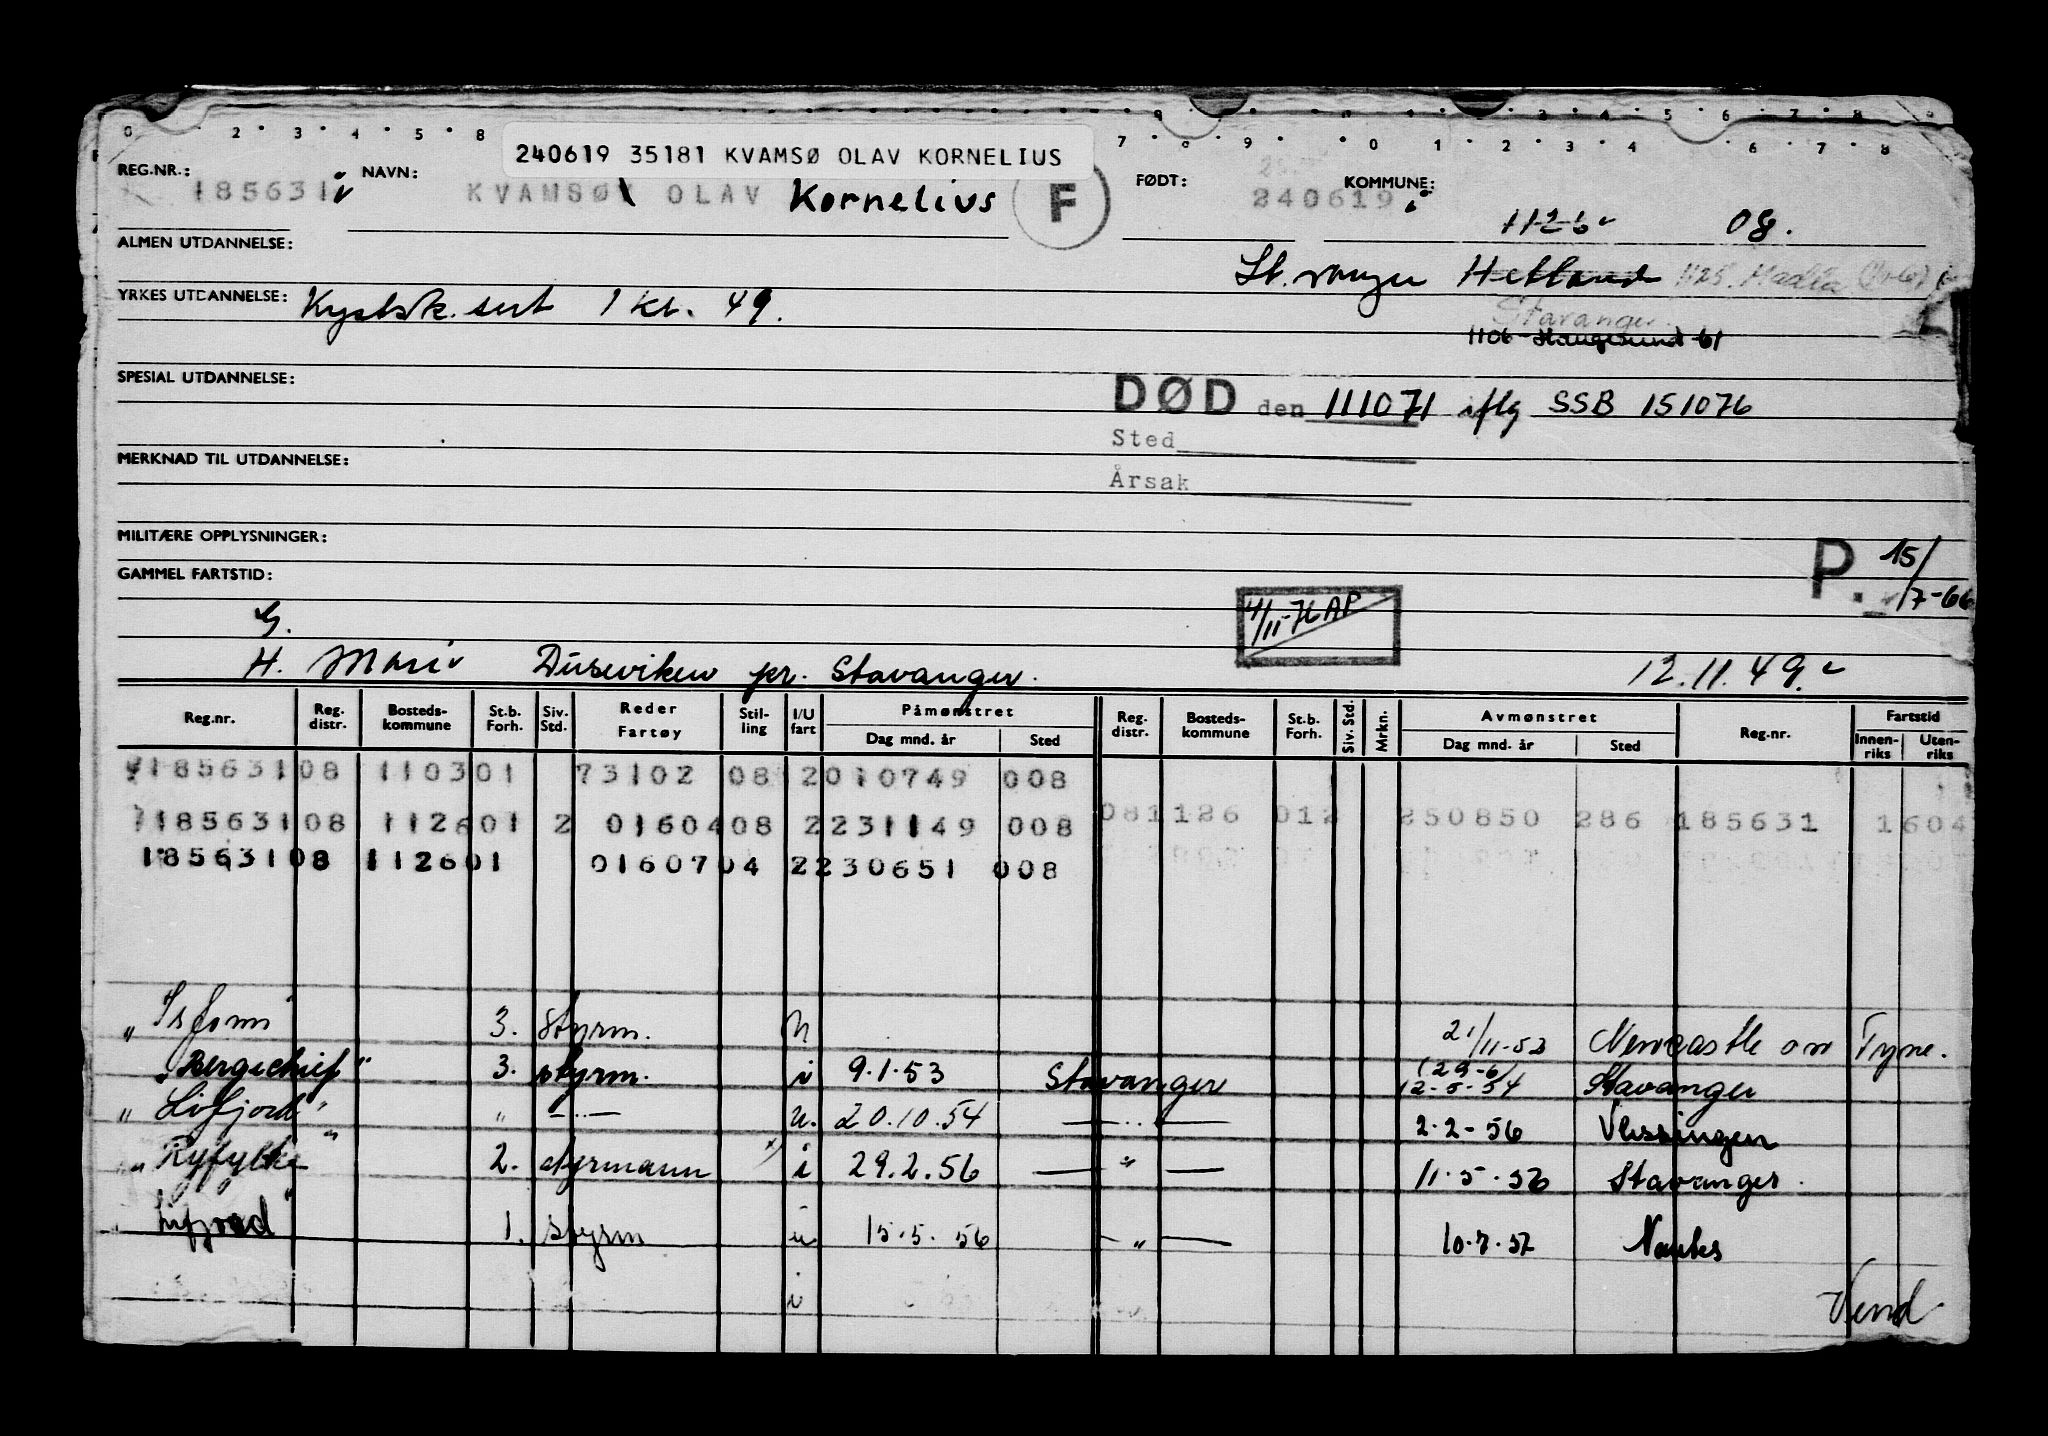 240619 35181 KVAMSØ OLAV KORNELIUS
REG.NR.: 185631 NAVN: KVAMSØ OLAV Kornelius F FØDT: 240619 KOMMUNE: 1126 08.
ALMEN UTDANNELSE: Hetland 1125
YRKES UTDANNELSE: Kystsk. sert 1 kl. 49.
Stavanger
1106 Haugesund 61
SPESIAL UTDANNELSE:
DØD den 111071 iflg SSB 151076
Sted
MERKNAD TIL UTDANNELSE:
Årsak
MILITÆRE OPPLYSNINGER:
P. 15/7-66
GAMMEL FARTSTID:
G.
4/11-76 AP
H. Duseviken pr. Stavanger. 12.11.49.
Reg.nr. Reg. distr. Bosteds- kommune St.b. Forh. Siv. Std. Reder Fartøy Stil- ling I/U fart Påmønstret Dag mnd. år Sted Reg. distr. Bosteds- kommune St.b. Forh. Siv. Std. Mrkn. Avmønstret Dag mnd. år Sted Reg.nr. Fartstid Innen- riks Uten- riks
185631 08 1103 01 73102 08 2 010749 008
185631 08 1126 01 2 01604 08 2 231149 008 08 1126 012 250850 286 185631 1604
185631 08 1126 01 01607 04 2 230651 008
„ Isfonn 3. styrm. U 21/11-53 Newcastle on Tyne.
„Bergechief" 3. styrm. i 9.1.53 Stavanger (29-6) 12-5-54 Stavanger
„ Lisfjord" " —..— u. 20.10.54 —..— 2.2-56 Vlissingen
„ Ryfylke" 2. styrmann x) i 29.2.56 — " — 11.5.56 Stavanger.
1. styrm u 15.5.56 — " — 10.7.57 Nantes
i
Vend